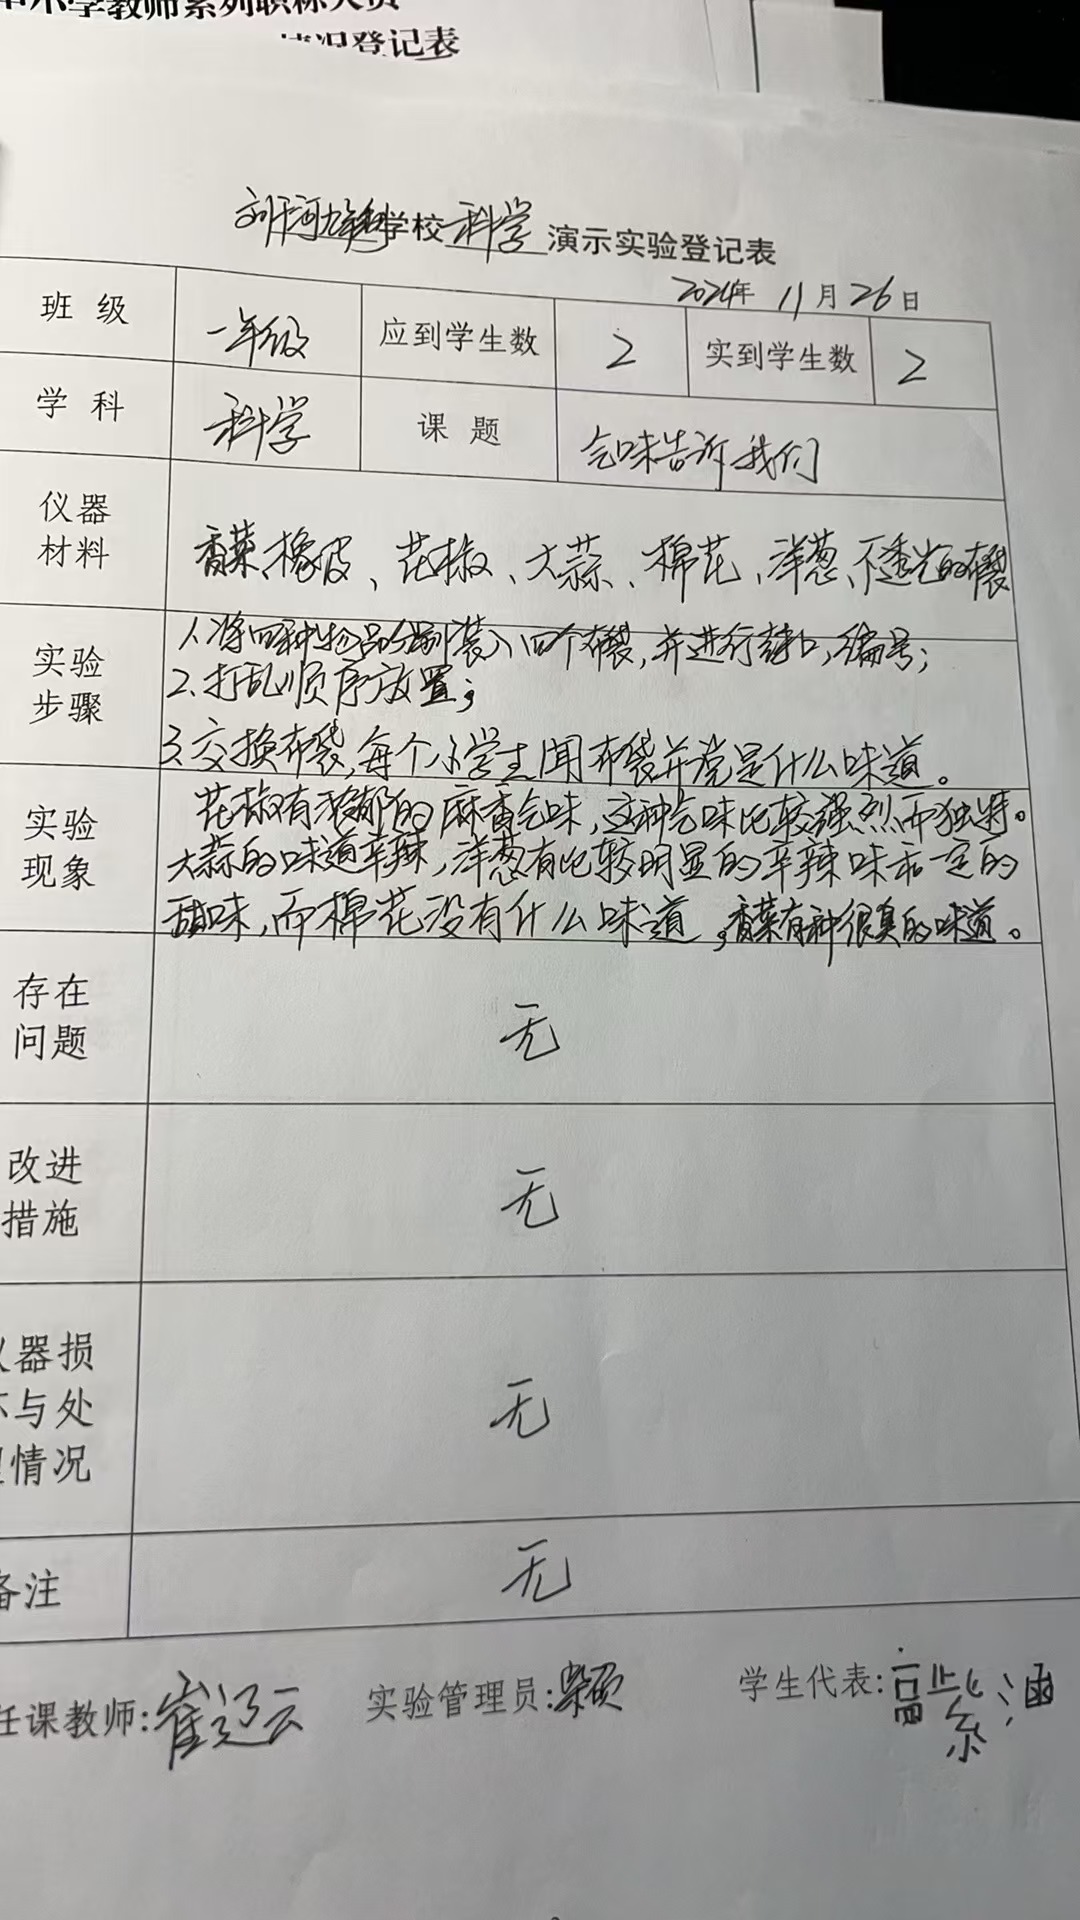 中小学教师系列职称人员
情况登记表
刘干河九年制学校 科学 演示实验登记表
2024年 11月26日
班级 一年级 应到学生数 2 实到学生数 2
学科 科学 课题 气味告诉我们
仪器材料 香菜、橡皮、花椒、大蒜、棉花、洋葱、不透光的布袋
实验步骤 1.将四种物品分别装入四个布袋,并进行封口,编号;
2.打乱顺序放置;
3.交换布袋,每个小学生闻布袋并说是什么味道。
实验现象 花椒有浓郁的麻香气味,这种气味比较强烈而独特。
大蒜的味道辛辣,洋葱有比较明显的辛辣味和一定的
甜味,而棉花没有什么味道,香菜有种很臭的味道。
存在问题 无
改进措施 无
仪器损坏与处理情况 无
备注 无
任课教师:崔迎云 实验管理员: 学生代表:高紫涵